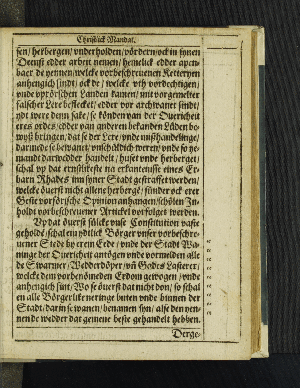 Christlick Mandat.
sen/ herbergen/ vnderholden/ vördern/ ock in synen
Deenst edder arbeit nemen/ hemelick edder apen-
baer de yennen/ welcke vorbeschreuenen Ketteryen
anhengich sindt/ ock de/ welcke vth vordechtigen/
vnde vprörschen Landen kamen/ mit vorgemelter
falscher Lere beflecket/ edder vor archwanet sindt/
ydt were denn sake/ se könden van der Ouericheit
eres ordes/ edder van anderen bekanden Lüden be-
wyß bringen/ dat se der Lere/ vnde mißhandelinge/
darmede se bewanet/ vnschüldich weren/ vnde so ye-
mandt darwedder handelt/ huset vnde herberget/
schal vp dat ernstlikeste na erkantenisse eines Er-
barn Rhades inn syner Stadt gestraffet werden/
welcke öuerst nicht allene herbergē/ sünder ock erer
Geste vorförische Opinion anhangen/ schölen In-
holdt vorbeschreuener Artickel voruolget werden.
Vp dat öuerst sülcke vnse Constitution vaste
geholdē/ schal ein ydtlick Börger vnser vorbeschre-
uener Stede by erem Eede/ vnde der Stadt Wa-
ninge der Ouericheit antögen vnde vormelden alle
de Swarmer/ Wedderdöper/ vñ Godes Lasterer/
welcke dem vorbenömeden Erdom gewagen/ vnde
anhengich sint/ Wo se öuerst dat nicht don/ so schal
en alle Börgerlike neringe buten vnde binnen der
Stadt/ darin se wanen/ benamen syn/ alse den yen-
nen de wedder dat gemene beste gehandelt hebben.
Derge-